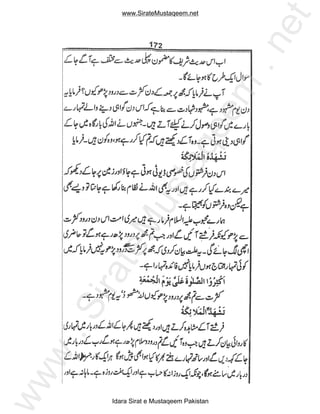 www.SirateMustaqeem.net
172
اب اس حدیث شریف کا مضمون پہلی حدیث سے مختلف ہے آگے جا کے
سوال ایک طرح کا ہو جائے گا۔
آپ نے فرمایا کہ مجھ پر جمعہ کے دن کثرت سے درود پڑھو کیوں؟ فرمایا یہ
دن یوم مشہود ہے مشہود شہادت سے بنا ہے کہ اس دن گواہی دینے والے تمہارے
بارے میں گواہی وصول کرنے کیلئے آتے ہیں۔ جنہوں نے اللہ کی بارگاہ میں جا کے
گواہی دینی ہوتی ہے۔ وہ آ کے دیکھتے ہیں کہ تم کیا کر رہے ہو وہ کون ہیں۔ فرمایا
تَشْهَدُهُ الْمَلَائِكَةُ
اس دن فرشتوں کی خصوصی ڈیوٹی ہوتی ہے جاؤ اور زمین پر جا کے دیکھو کہ
میرے بندے کیا کر رہے ہیں اور یہ بھی اللہ نے نظام بنا رکھا ہے جانتا تو وہ ویسے بھی
ہے لیکن وہ فرشتوں کو بھیجتا ہے۔
ہمارے محبوب علیہ السلام فرما رہے ہیں میری امت اس دن درود کثرت
سے پڑھو کیونکہ فرشتے آئیں گے اور جب تم مجھ پر درود پڑھ رہے ہو گے تو حاضری
اچھی لگ جائے گی۔ یہ علت بیان کر دی کہ مجھ پر کثرت سے درود پڑھو یہ نہیں فرمایا میں کہ میں
کوئی تمہارا محتاج ہوں فرمایا نہیں فائدہ تمہارا ہے۔
اَكْثِرُوا الصَّلٰوةَ عَلَيَّ يَوْمَ الْجُمُعَةِ
کثرت سے مجھ پر درود پڑھو کیوں لِاَنَّهٗ مَشْهُوْدٌ یہ یوم مشہود ہے۔
تَشْهَدُهُ الْمَلَائِكَةُ
فرشتے آ کے مشاہدہ کرتے ہیں اور دیکھتے ہیں پھر جا کے اللہ کے دربار میں تمہاری
کاروائی بیان کرتے ہیں جب وہ آئیں گے تم درود و سلام پڑھ رہے ہو گے رب کے دربار میں
جا کے کہہ دیں گے اور ساتھ تمہارے لئے پھر کیا کیا ہو گا پیش ہو گا ہر ایک کا رسول اللہ کے
دربار میں سامنے ہو گا، چونکہ ایک روزانہ کا حساب ہے اور ایک ہفت روزہ ہے۔ ماہانہ ہے اور
Idara Sirat e Mustaqeem Pakistan